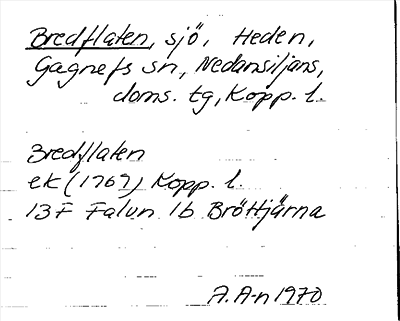 Bredflaten, sjö, Heden,
Gagnefs sn, Nedansiljans,
doms. tg, Kopp. l.
Bredflaten
ek (1767) Kopp. l.
13F Falun 1b Bröttjärna
A. A-n 1970